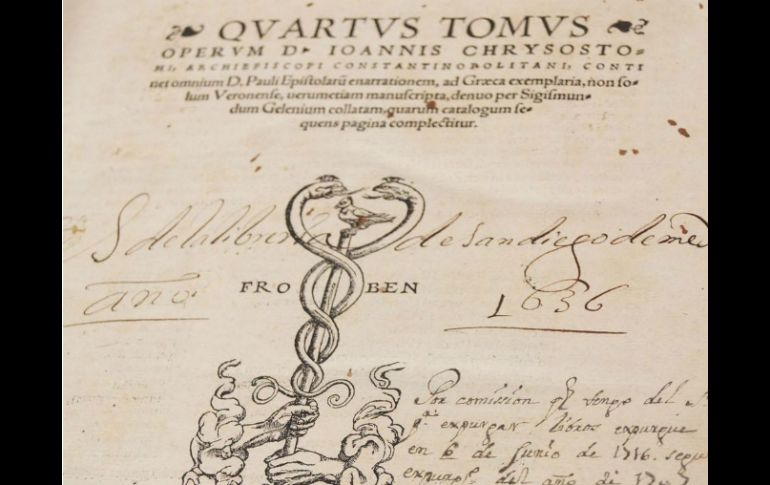 QVARTVS TOMVS
OPERVM D. IOANNIS CHRYSOSTO-
MI, ARCHIEPISCOPI CONSTANTINOPOLITANI, CONTI
net omnium D. Pauli Epistolarũ enarrationem, ad Græca exemplaria, non so-
lum Veronense, uerumetiam manuscripta, denuo per Sigismun-
dum Gelenium collatam, quarum catalogum se-
quens pagina complectitur.
S de la libreria de san diego de
año 1636
FRO BEN
Por comission q̃ tengo del
expurgar libros expurgue
en 6 de Junio de 1716. segu
expurg.º del año de 1707